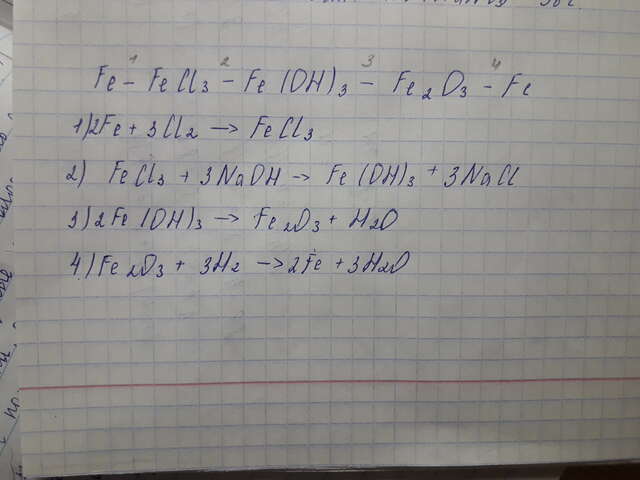 1 2 3 4
Fe - FeCl3 - Fe(OH)3 - Fe2O3 - Fe
1) 2Fe + 3Cl2 → FeCl3
2) FeCl3 + 3NaOH → Fe(OH)3 + 3NaCl
3) 2Fe(OH)3 → Fe2O3 + H2O
4) Fe2O3 + 3H2 → 2Fe + 3H2O